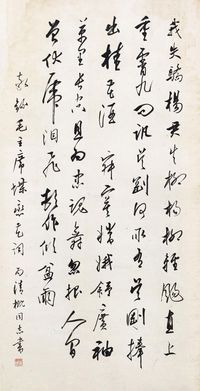 我失驕楊君失柳楊柳輕颺直上
重霄九問訊吳剛何所有吳剛捧
出桂花酒 寂寞嫦娥舒廣袖
萬里長空且為忠魂舞忽報人間
曾伏虎淚飛頓作傾盆雨
敬錄毛主席蝶戀花詞 為清松同志書